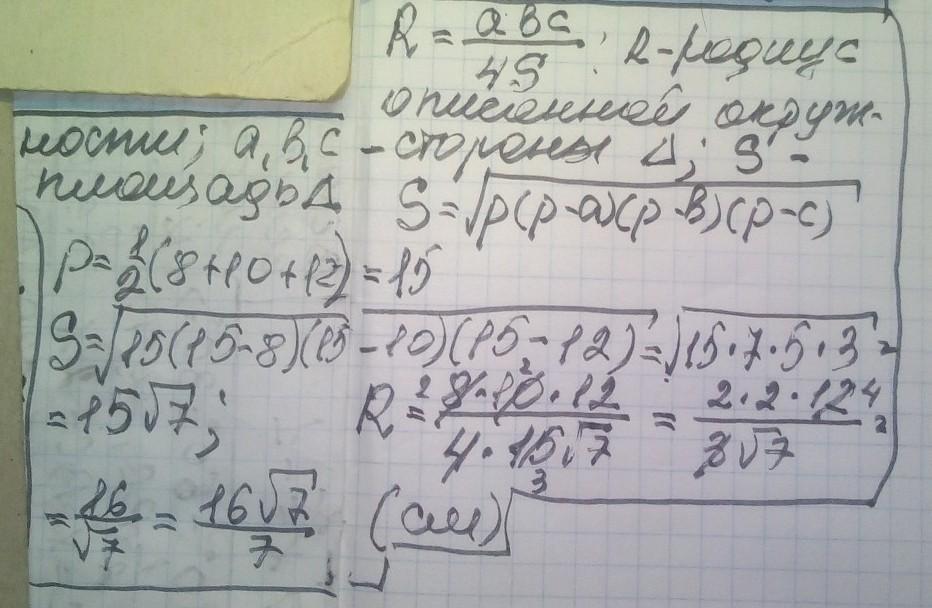 R = abc/4S ; R - радиус
описанной окруж-
ности; a, b, c - стороны Δ; S -
площадь Δ
S = √p(p-a)(p-b)(p-c)
p = 1/2(8+10+12) = 15
S = √15(15-8)(15-10)(15-12) = √15·7·5·3 =
= 15√7; R = 8·10·12/4·15√7 = 2·2·12/3√7 =
= 16/√7 = 16√7/7 (см)